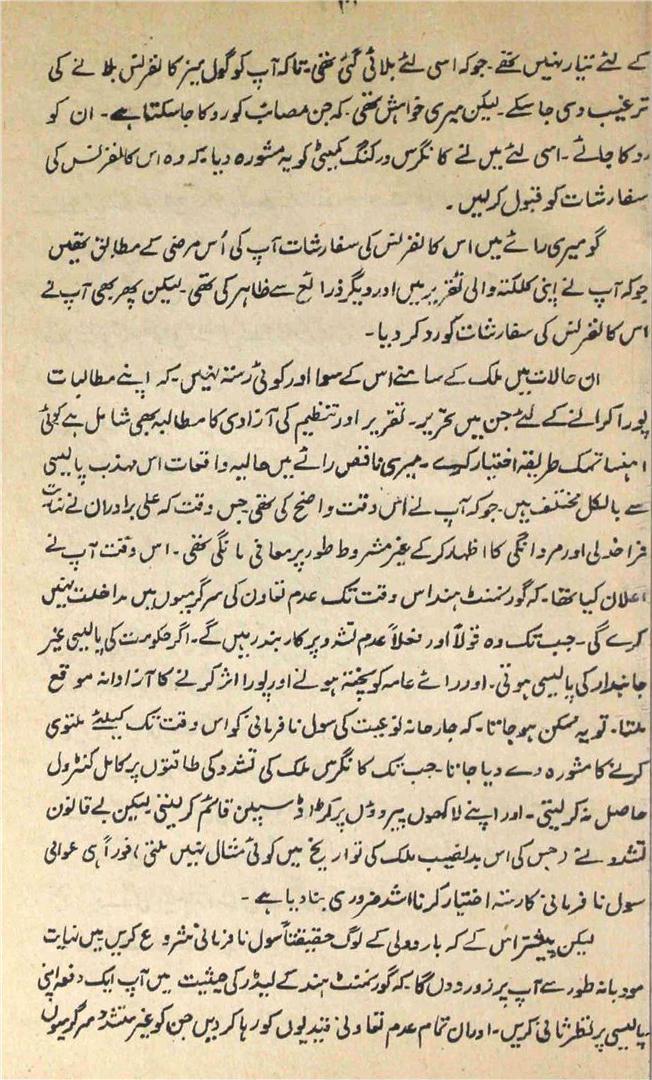 کے لئے تیار نہیں تھے۔ جو کہ اسی لئے بلائی گئی تھی۔ تاکہ آپ کو گول میز کانفرنس بلانے کی
ترغیب دی جا سکے۔ لیکن میری خواہش تھی۔ کہ جن مصائب کو روکا جا سکتا ہے۔ ان کو
روکا جائے۔ اسی لئے میں نے کانگرس ورکنگ کمیٹی کو یہ مشورہ دیا۔ کہ وہ اس کانفرنس کی
سفارشات کو قبول کر لیں۔
گو میری رائے میں اس کانفرنس کی سفارشات آپ کی اُس مرضی کے مطابق تھیں
جو کہ آپ نے اپنی کلکتہ والی تقریر میں اور دیگر ذرائع سے ظاہر کی تھی۔ لیکن پھر بھی آپ نے
اس کانفرنس کی سفارشات کو رد کر دیا۔
ان حالات میں ملک کے سامنے اس کے سوا اور کوئی رستہ نہیں۔ کہ اپنے مطالبات
پورا کرانے کے لئے جن میں تحریر۔ تقریر اور تنظیم کی آزادی کا مطالبہ بھی شامل ہے کوئی
اہنساتمک طریقہ اختیار کرے۔ میری ناقص رائے میں حالیہ واقعات اس مہذب پالیسی
سے بالکل مختلف ہیں۔ جو کہ آپ نے اُس وقت واضح کی تھی جس وقت کہ علی برادران نے نہایت
فراخدلی اور مردانگی کا اظہار کر کے غیر مشروط طور پر معافی مانگی تھی۔ اس وقت آپ نے
اعلان کیا تھا۔ کہ گورنمنٹ ہند اس وقت تک عدم تعاون کی سرگرمیوں میں مداخلت نہیں
کرے گی۔ جب تک وہ قولاً اور فعلاً عدم تشدد پر کاربند رہیں گے۔ اگر حکومت کی پالیسی غیر
جانبدار کی پالیسی ہوتی۔ اور رائے عامہ کو پختہ ہونے اور پورا اثر کرنے کا آزادانہ موقع
ملتا۔ تو یہ ممکن ہو جاتا۔ کہ جارحانہ نوعیت کی سول نافرمانی کو اس وقت تک کیلئے ملتوی
کرنے کا مشورہ دے دیا جاتا۔ جب تک کانگرس ملک کی تشدد کی طاقتوں پر کامل کنٹرول
حاصل نہ کر لیتی۔ اور اپنے لاکھوں پیروؤں پر کڑا ڈسپلن قائم کر لیتی لیکن بے قانون
تشدد نے (جس کی اس بدنصیب ملک کی تواریخ میں کوئی مثال نہیں ملتی) فوراً ہی عوامی
سول نافرمانی کا رستہ اختیار کرنا اشد ضروری بنا دیا ہے۔
لیکن پیشتر اس کے کہ باردولی کے لوگ حقیقتاً سول نافرمانی شروع کریں میں نہایت
مودبانہ طور سے آپ پر زور دوں گا کہ گورنمنٹ ہند کے لیڈر کی حیثیت میں آپ ایک دفعہ اپنی
پالیسی پر نظر ثانی کریں۔ اور ان تمام عدم تعاونی قیدیوں کو رہا کر دیں جن کو غیر متشدد سرگرمیوں